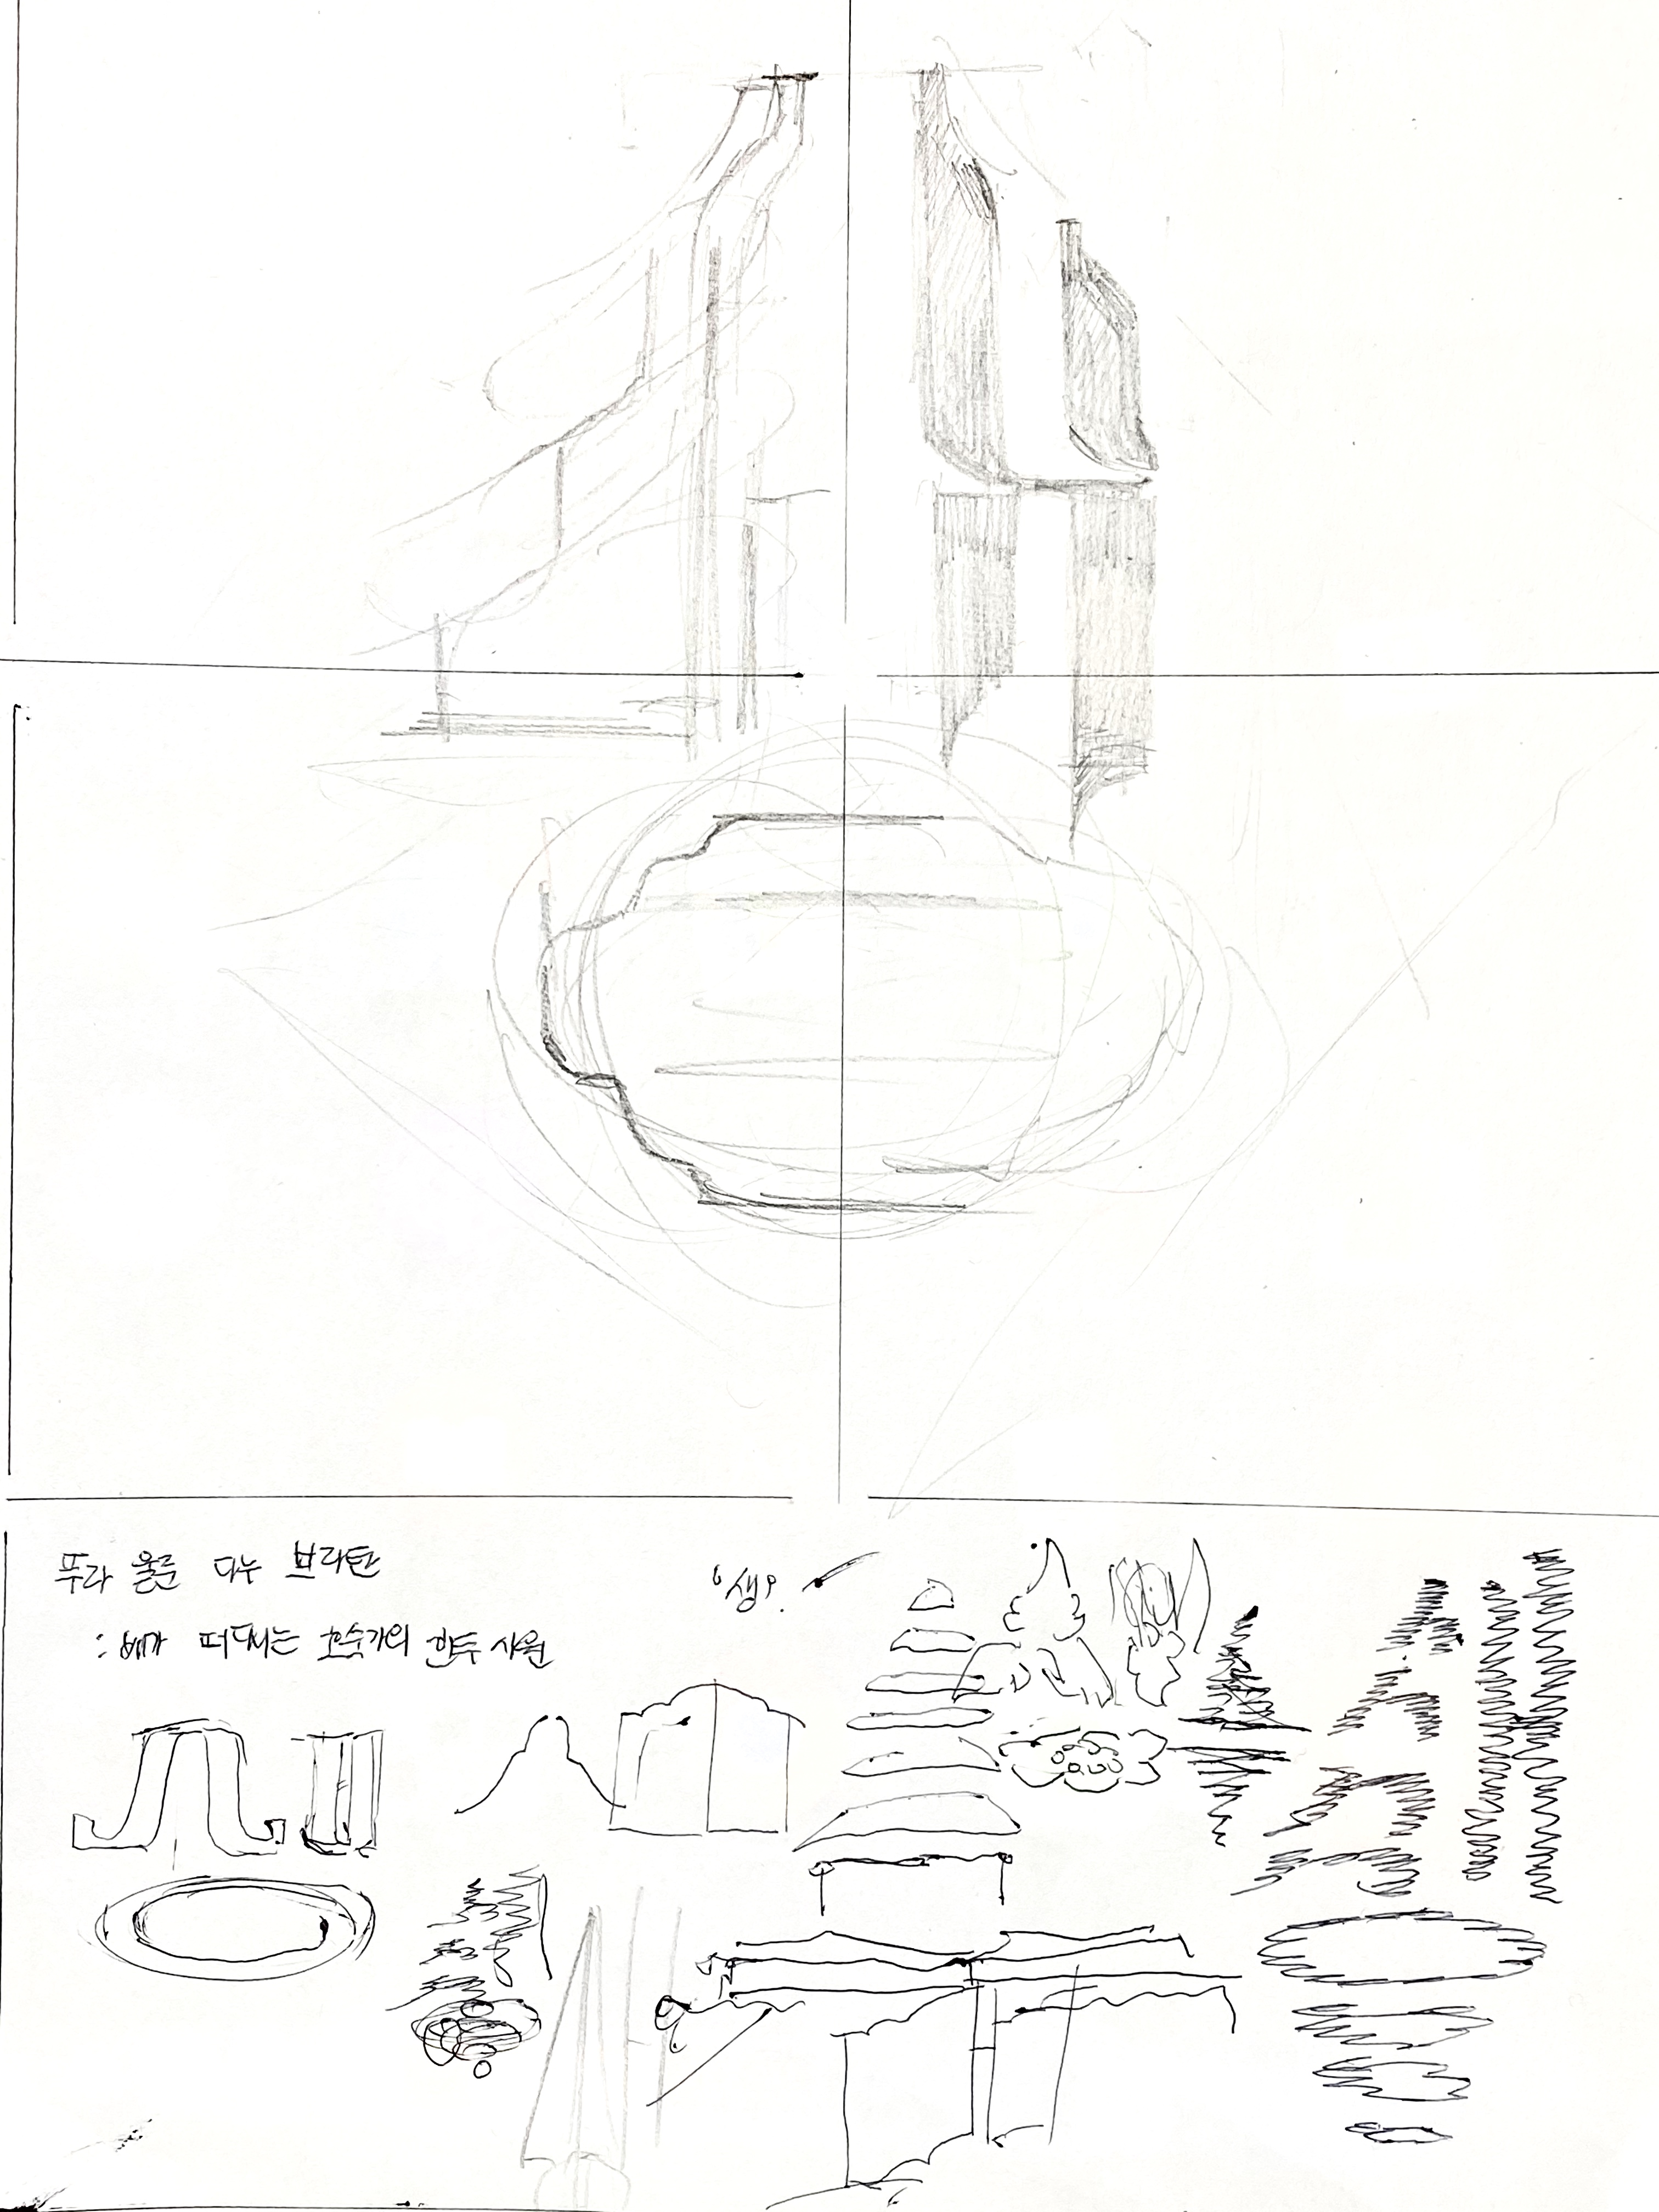 푸라 울룬 다누 브라탄
: 배가 떠다니는 호숫가의 힌두 사원